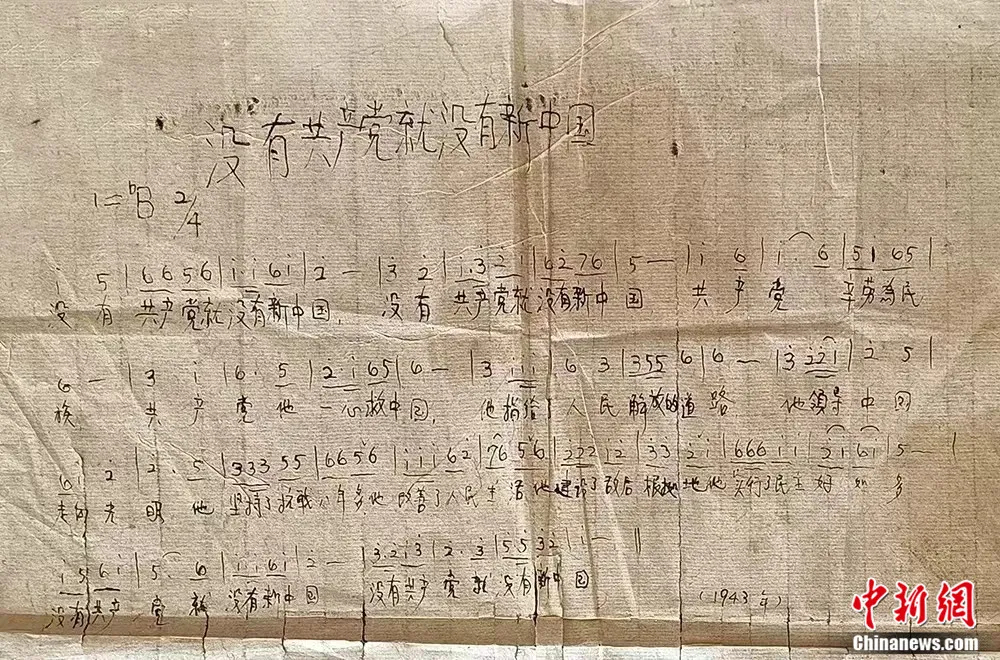 没有共产党就没有新中国
1=♭B 2/4
i 5 | 6 6 5 6 | i i 6 i | 2 — | 3 2 | i.3 2 i | 6 2 7 6 | 5 — | i 6 | i . 6 | 5 i 6 5 |
没有 共产党就没有新中国, 没有 共产党就没有新中国 共产党 辛劳為民
6 — | 3 i | 6 . 5 | 2 . i 6 5 | 6 — | 3 i i | 6 3 | 3 5 5 6 | 6 — | 3 2 2 i | 2 5 |
族 共产党他一心救中国, 他指给了人民解放的道路 他領导中国
6 i 2 | 2 . 5 | 3 3 3 5 5 | 6 6 5 6 | i i i 6 2 | 7 6 5 6 | 2 2 2 i 2 | 3 3 2 i | 6 6 6 i i | 2 i 6 i | 5 — |
走向光明 他坚持了抗战八年多他改善了人民生活他建设了敌后根据地他实行了民主好处多
i 5 6 i | 5 . 6 | i i 6 i | 2 — | 3.2 i 3 | 2 . 3 | 5 5 3 2 | i — ‖
没有共产党就没有新中国 没有共产党就没有新中国
(1943年)
中新網
Chinanews.com